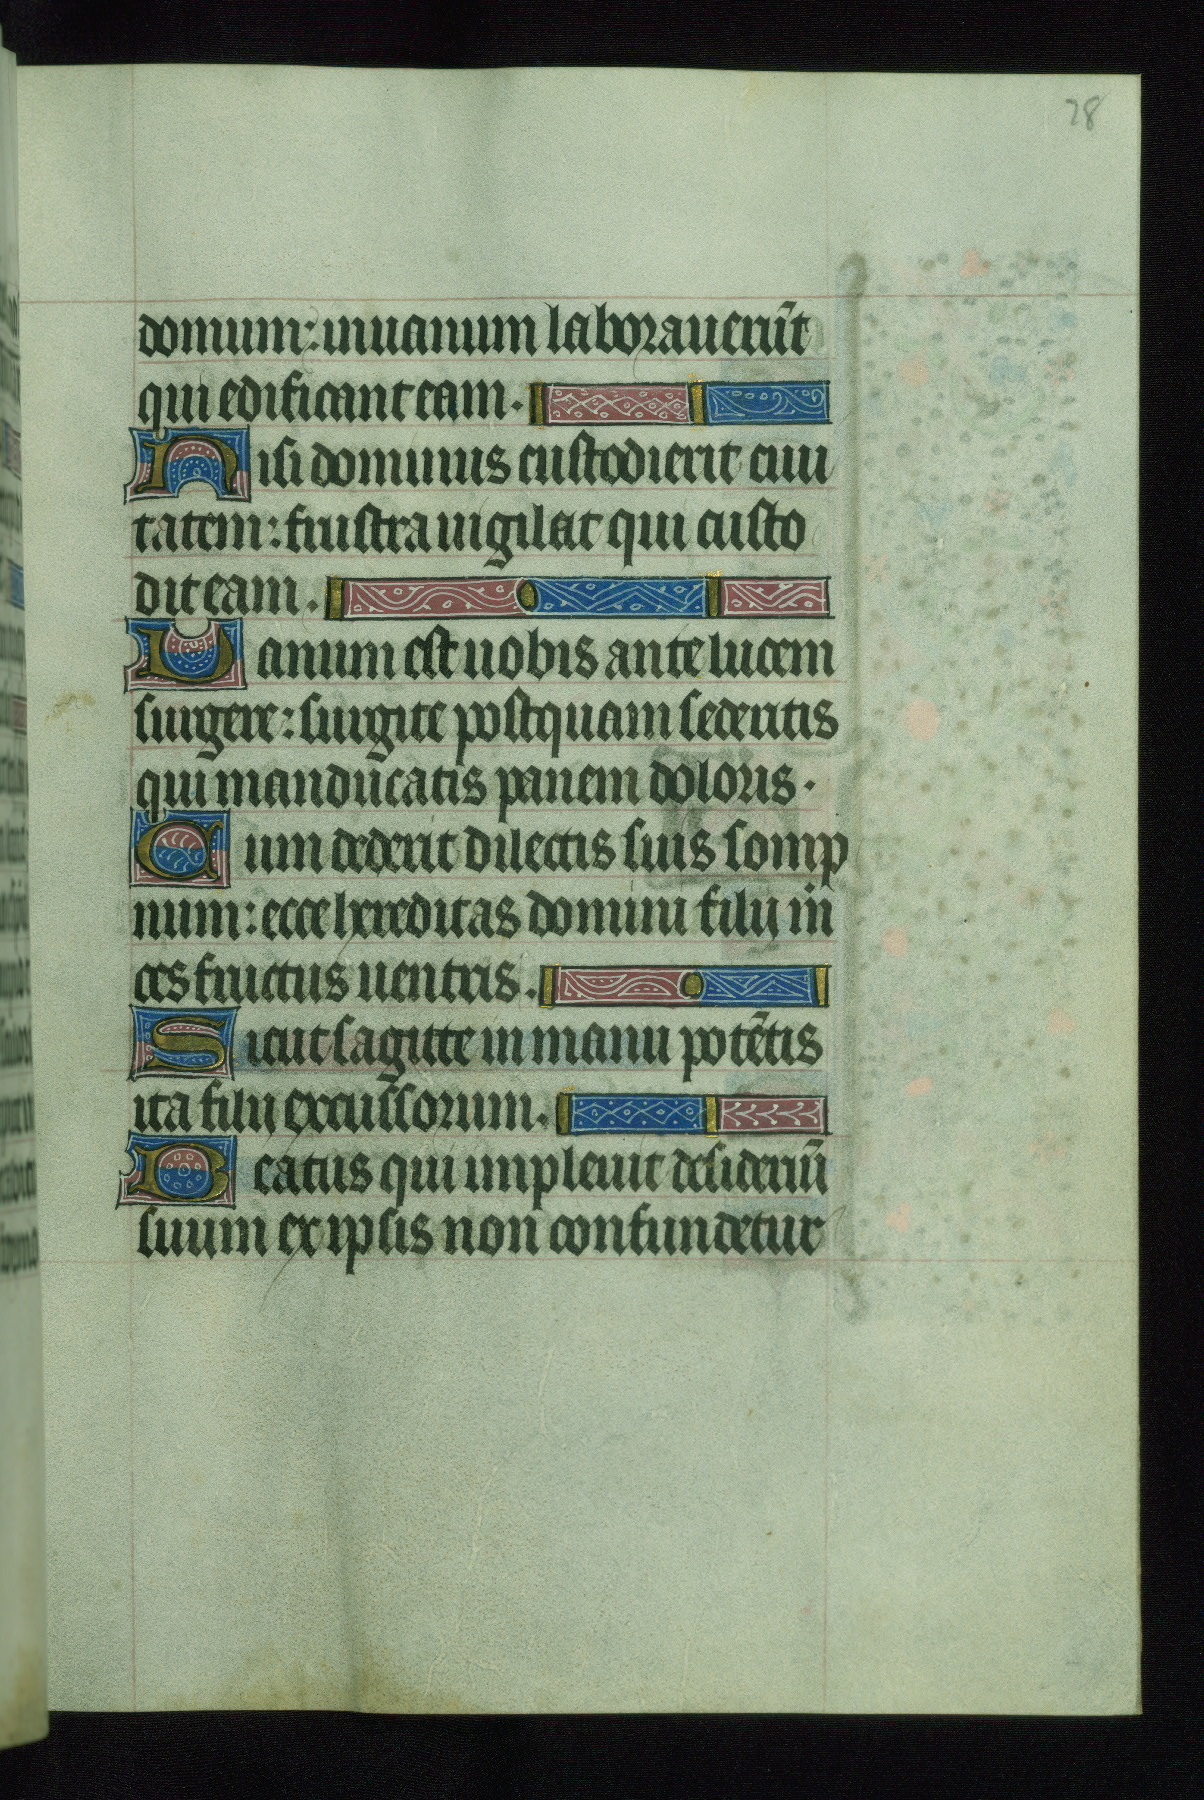 28
domum: inuanum laborauerūt
qui edificant eam.
Nisi dominus custodierit ciui
tatem: frustra uigilat qui custo
dit eam.
Uanum est uobis ante lucem
surgere: surgite postquam sederitis
qui manducatis panem doloris.
Cum dederit dilectis suis somp
num: ecce hereditas domini filij m̄
ces fructus uentris.
Sicut sagitte in manu potētis
ita filij excussorum.
Beatus qui impleuit desideriū
suum ex ipsis non confundetur